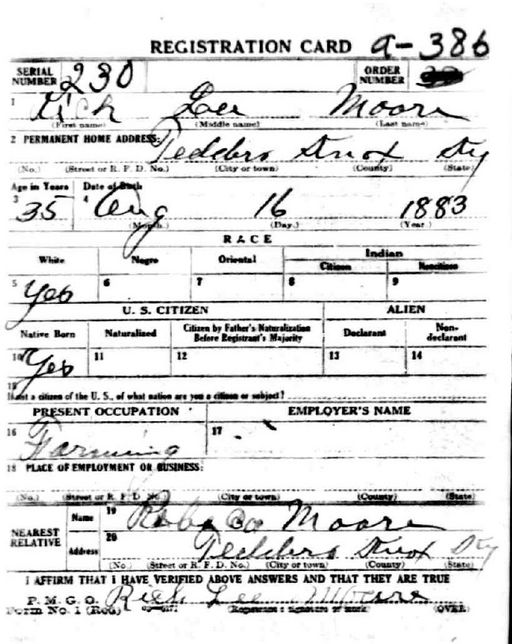 REGISTRATION CARD a-386
SERIAL NUMBER 230 ORDER NUMBER
1 Rich Lee Moore
(First name) (Middle name) (Last name)
2 PERMANENT HOME ADDRESS: Tedders Knox Ky
(No.) (Street or R. F. D. No.) (City or town) (County) (State)
Age in Years Date of Birth
3 35 4 Aug 16 1883
(Month.) (Day.) (Year.)
RACE
White Negro Oriental Indian
Citizen Noncitizen
5 Yes 6 7 8 9
U. S. CITIZEN ALIEN
Native Born Naturalized Citizen by Father's Naturalization Before Registrant's Majority Declarant Non-declarant
10 Yes 11 12 13 14
15
If not a citizen of the U. S., of what nation are you a citizen or subject?
PRESENT OCCUPATION EMPLOYER'S NAME
16 Farming 17
18 PLACE OF EMPLOYMENT OR BUSINESS:
(No.) (Street or R. F. D. No.) (City or town) (County) (State)
NEAREST RELATIVE Name 19 Moore
Address 20 Tedders Knox Ky
(No.) (Street or R. F. D. No.) (City or town) (County) (State)
I AFFIRM THAT I HAVE VERIFIED ABOVE ANSWERS AND THAT THEY ARE TRUE
P. M. G. O. Rich Lee Moore
Form No. 1 (Red) (Registrant's signature or mark) (OVER)